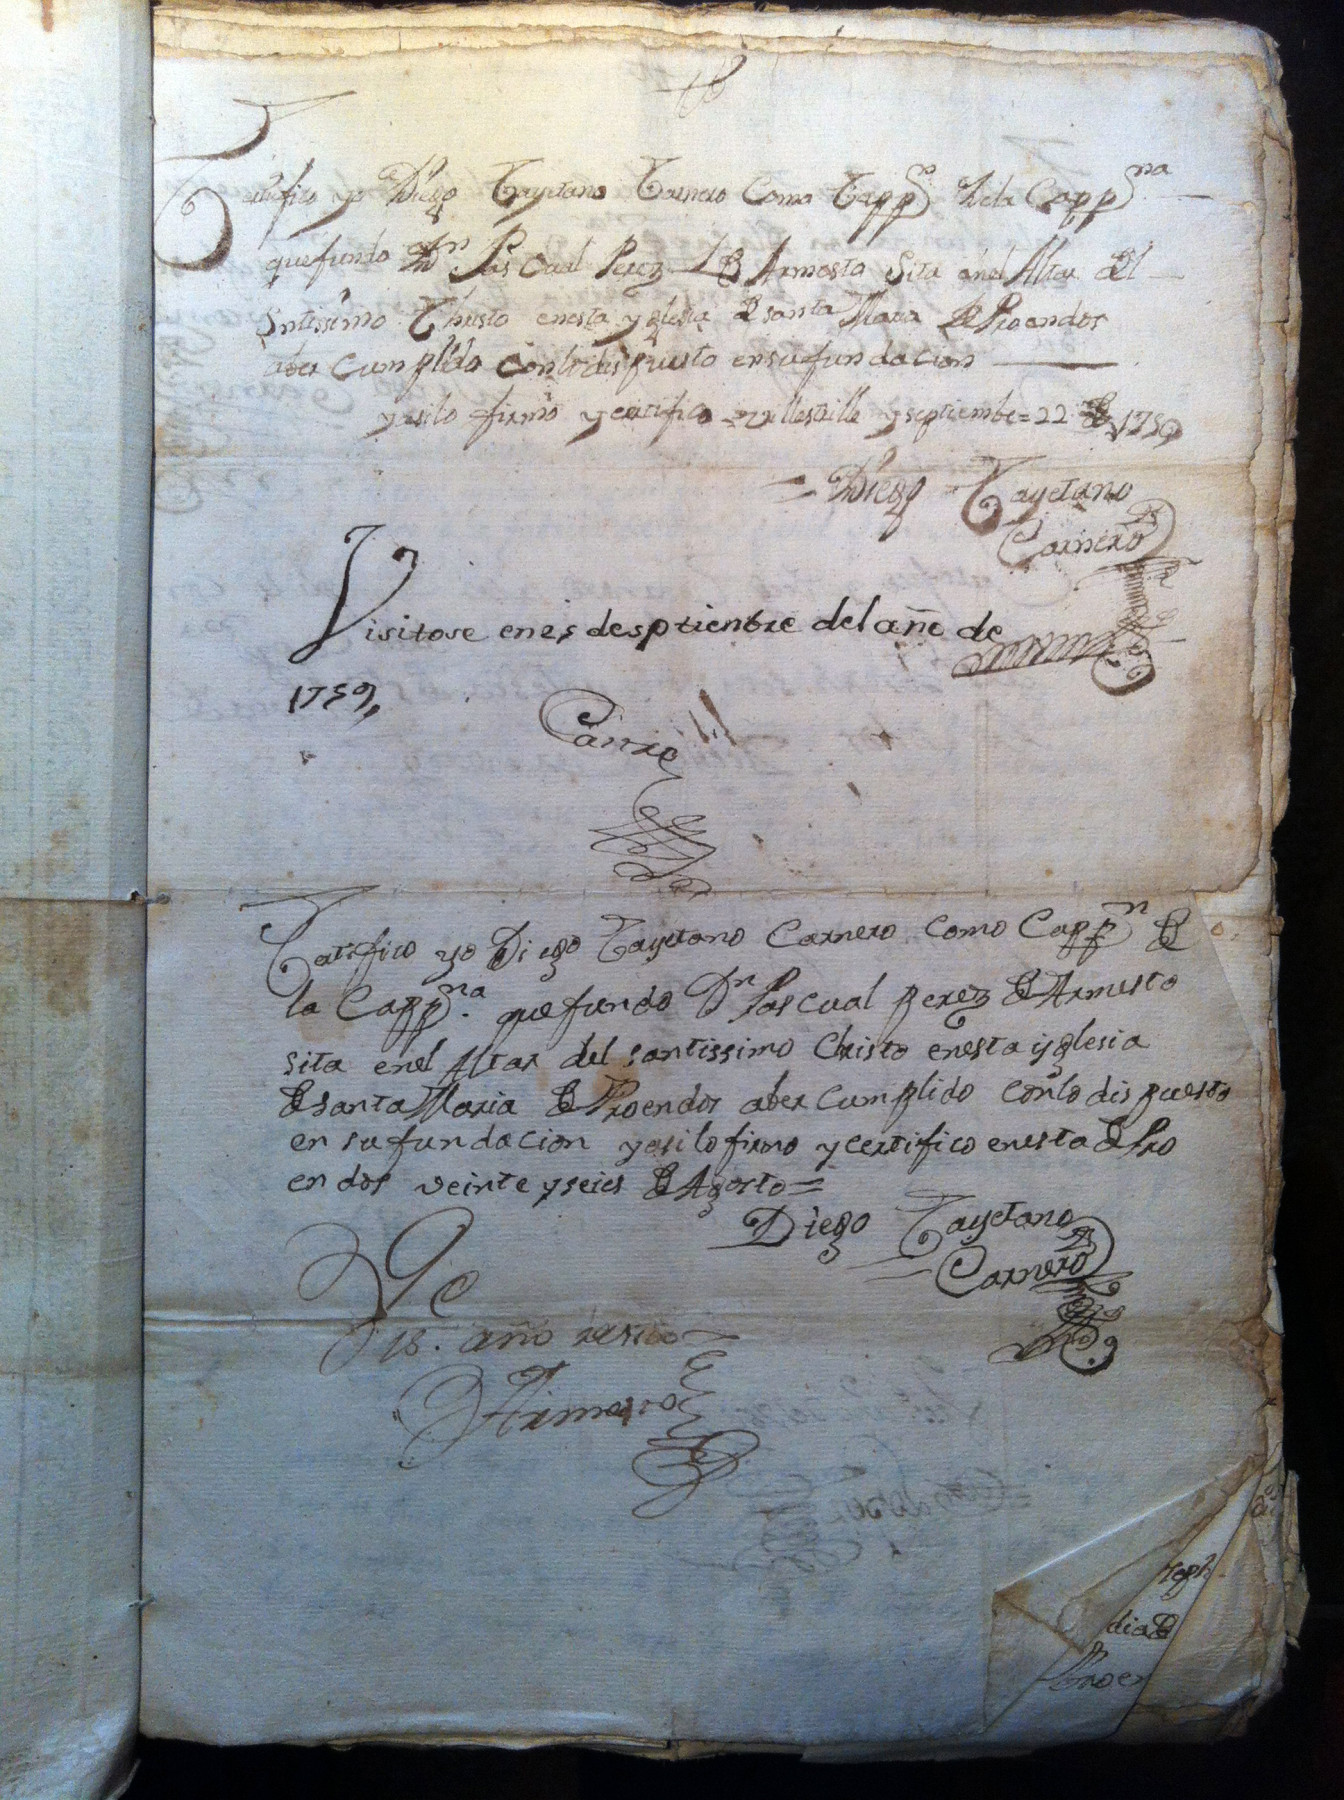 Certifico yo Diego Cayetano Carnero Como Capp.n de la Capp.na
que fundo Dn Pascual Perez de Armesto Sita en el Altar del
Sntissimo Christo enesta yglesia de santa Maria de Proendos
aber Cumplido con lo dispuesto en su fundacion
y asi lo firmo y certifico y septiembe = 22 de 1759
= Diego Cayetano
Carnero
Visitose en de septienbre del año de
1759,
Certifico yo Diego Cayetano Carnero Como Capp.n de
la Capp.na que fundo Dn Pascual perez de Armesto
sita enel Altar del santissimo Christo enesta iyglesia
de santa Maria de Proendos aber Cumplido con lo dispuesto
en su fundacion y asi lo firmo y certifico enesta de Pro
endos veinte y seies de Agosto =
Diego Cayetano
Carnero
18. año
Armesto
dia de
Proen